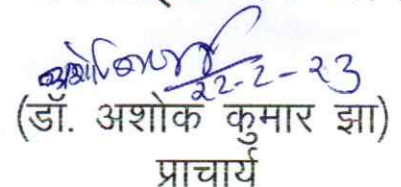 22-2-23
(डॉ. अशोक कुमार झा)
प्राचार्य